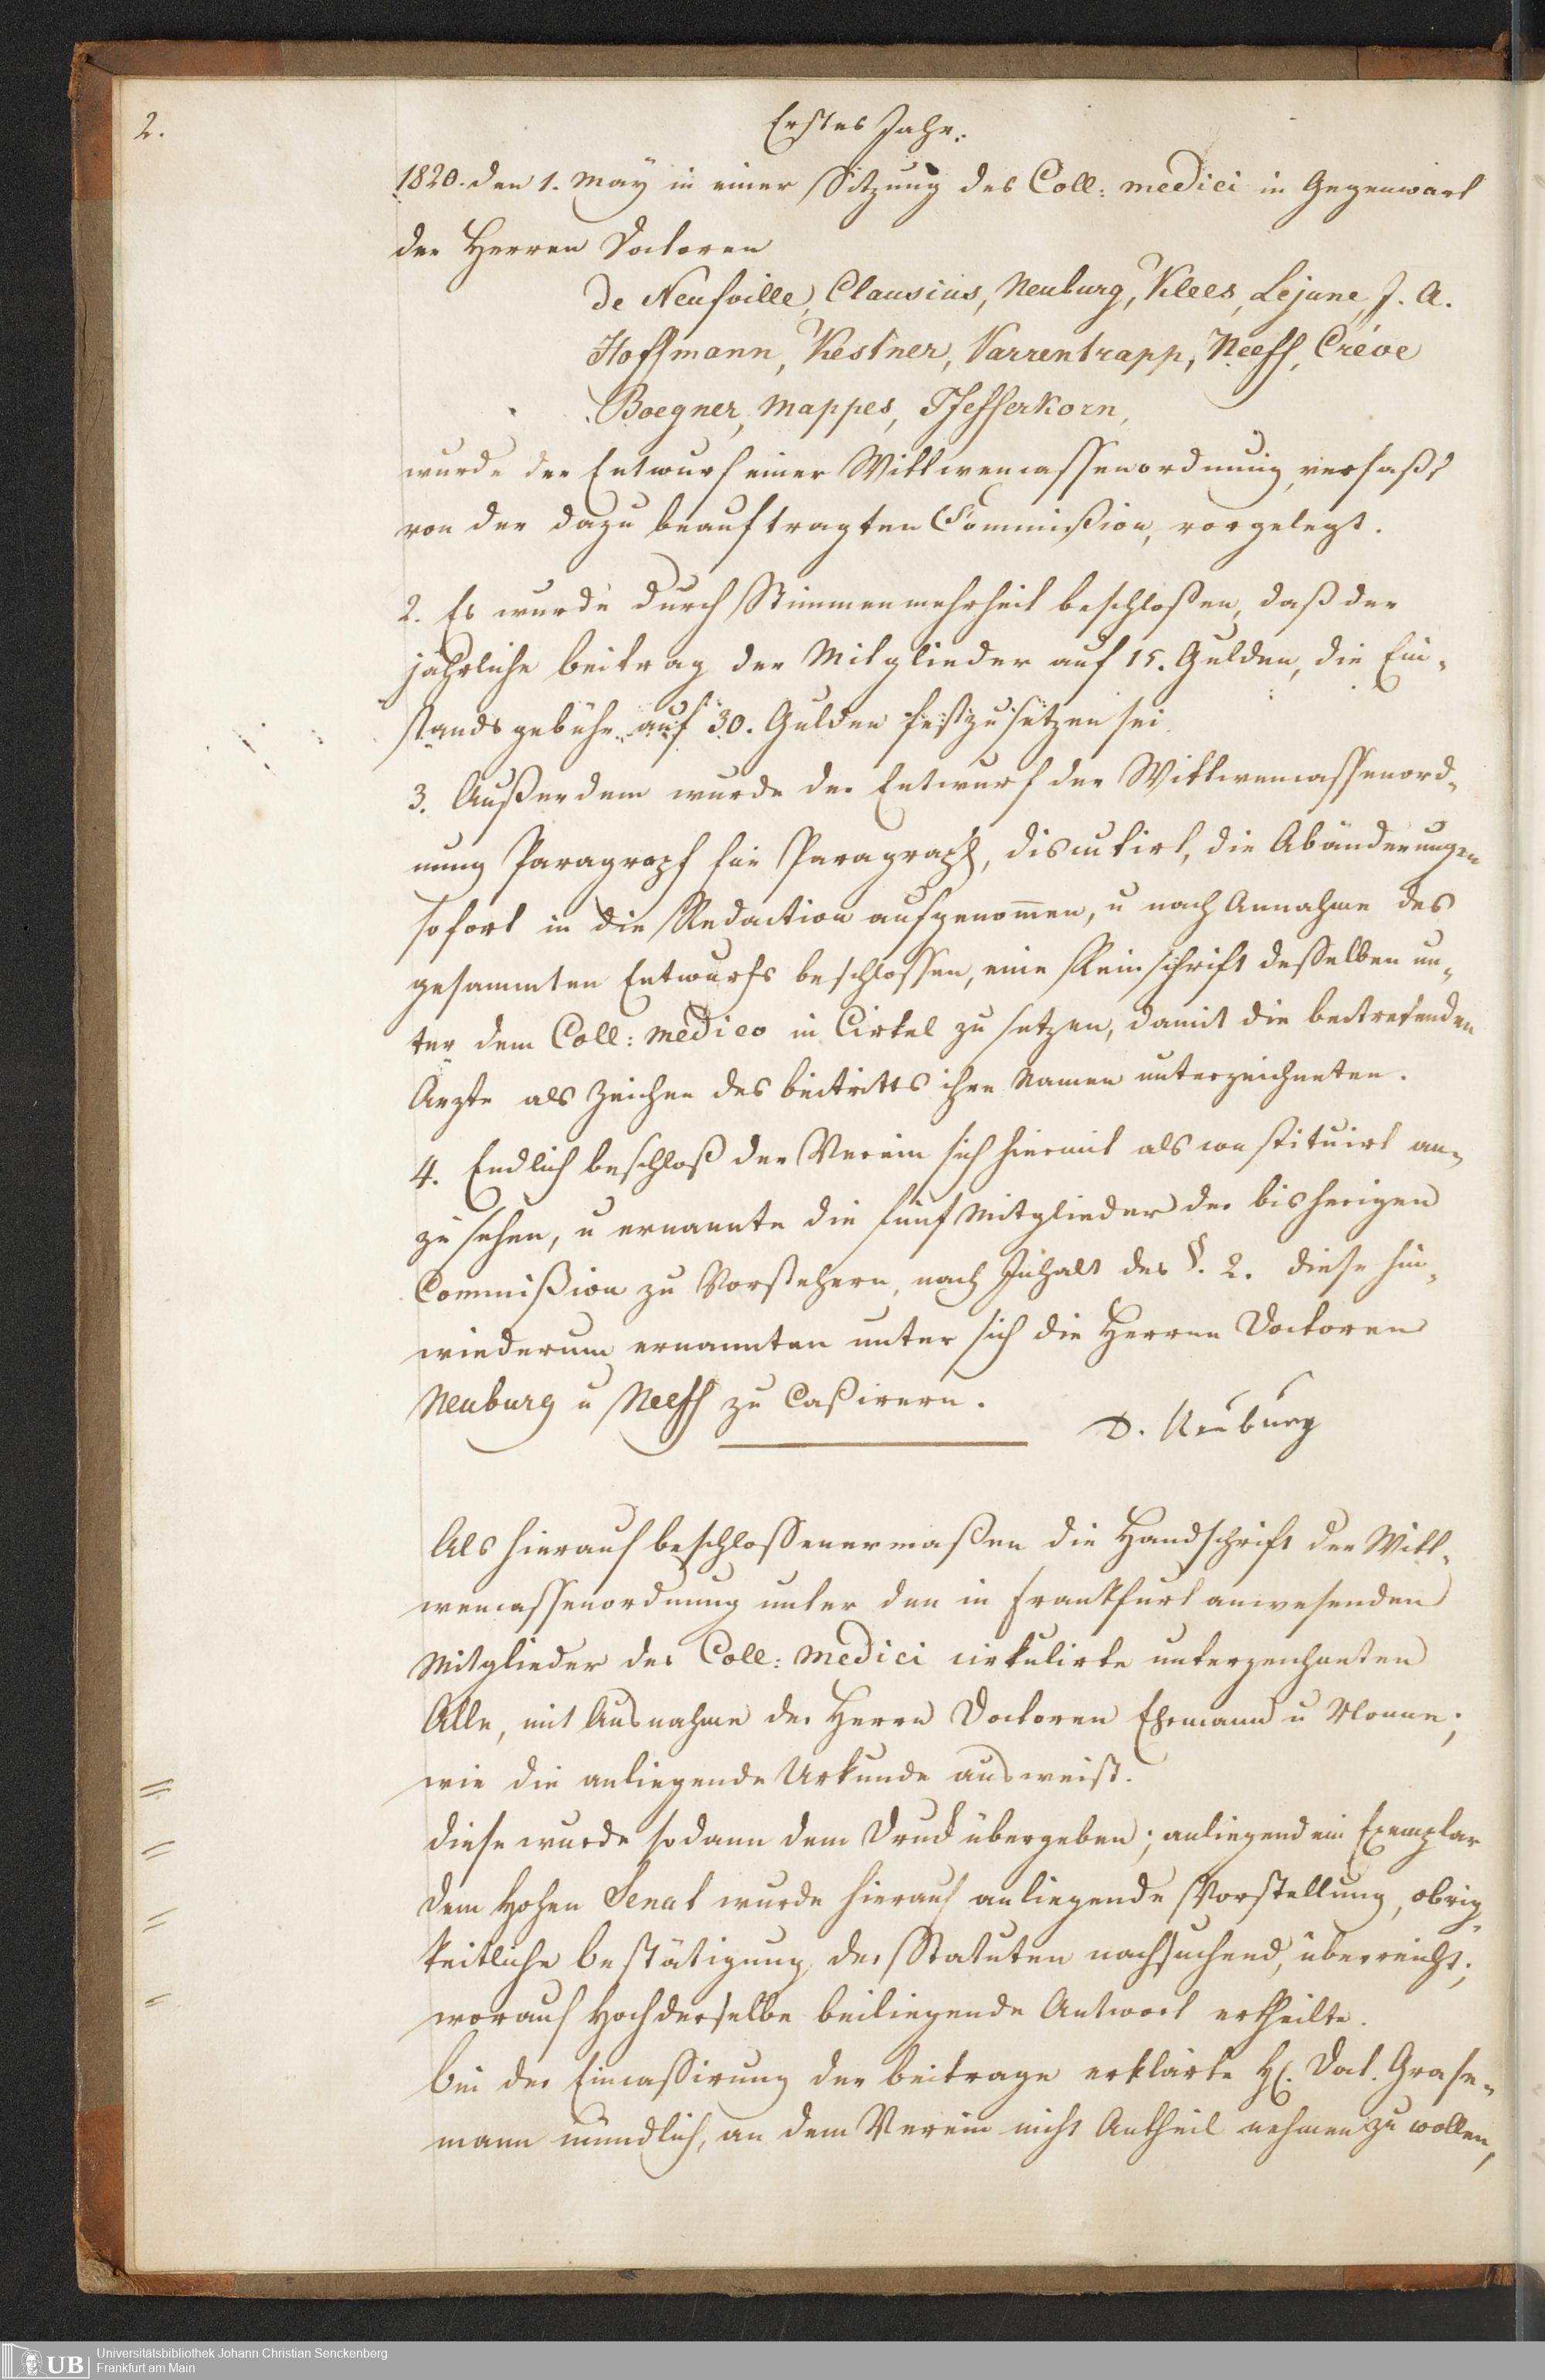 2.
Erstes Jahr.
1820. den 1. May in einer Sitzung des Coll: medici in Gegenwart
der Herren Doctoren
de Neufville, Clausius, Neuburg, Klees, Lejune, J. A.
Hoffmann, Kestner, Varrentrapp, Neeff, Créve
Boegner, Mappes, Pfefferkorn,
wurde der Entwurf einer Wittwencassenordnung, verfaßt
von der dazu beauftragten Commißion, vorgelegt.
2. Es wurde durch Stimmenmehrheit beschloßen, daß der
jährliche Beitrag der Mitglieder auf 15. Gulden, die Ein-
standsgebühr auf 30. Gulden festzusetzen sei.
3. Außerdem wurde der Entwurf der Wittwencassenord-
nung Paragraph für Paragraph, discutirt, die Abänderungen
sofort in die Redaction aufgenom̄en, u nach Annahme des
gesammten Entwurfs beschlossen, eine Reinschrift desselben un-
ter dem Coll: medico in Cirkel zu setzen, damit die beitretenden
Arzte als Zeichen des Beitritts ihre Namen unterzeichneten.
4. Endlich beschloß der Verein sich hiermit als constituirt an-
zusehen, u ernannte die fünf Mitglieder der bisherigen
Commißion zu Vorstehern, nach Inhalt des §. 2. diese hin-
wiederum ernannten unter sich die Herren Doctoren
Neuburg u Neeff zu Caßirern.
D. Neuburg
Als hierauf beschlossenermaßen die Handschrift der Witt-
wencassenordnung unter den in Frankfurt anwesenden
Mitglieder des Coll: medici cirkulirte unterzeichneten
Alle, mit Ausnahme der Herrn Doctoren Ehrmann u Nonne;
wie die anliegende Urkunde ausweist.
Diese wurde sodann dem Druck übergeben; anliegend ein Exemplar
Dem Hohen Senat wurde hierauf anliegende Vorstellung, obrig-
keitliche Bestätigung der Statuten nachsuchend, überreicht;
worauf Hochderselbe beiliegende Antwort ertheilte.
Bei der Eincassirung der Beitrage erklärte H. Doct. Grase-
mann mündlich, an dem Verein nicht Antheil nehmen zu wollen,
UB
Universitätsbibliothek Johann Christian Senckenberg
Frankfurt am Main